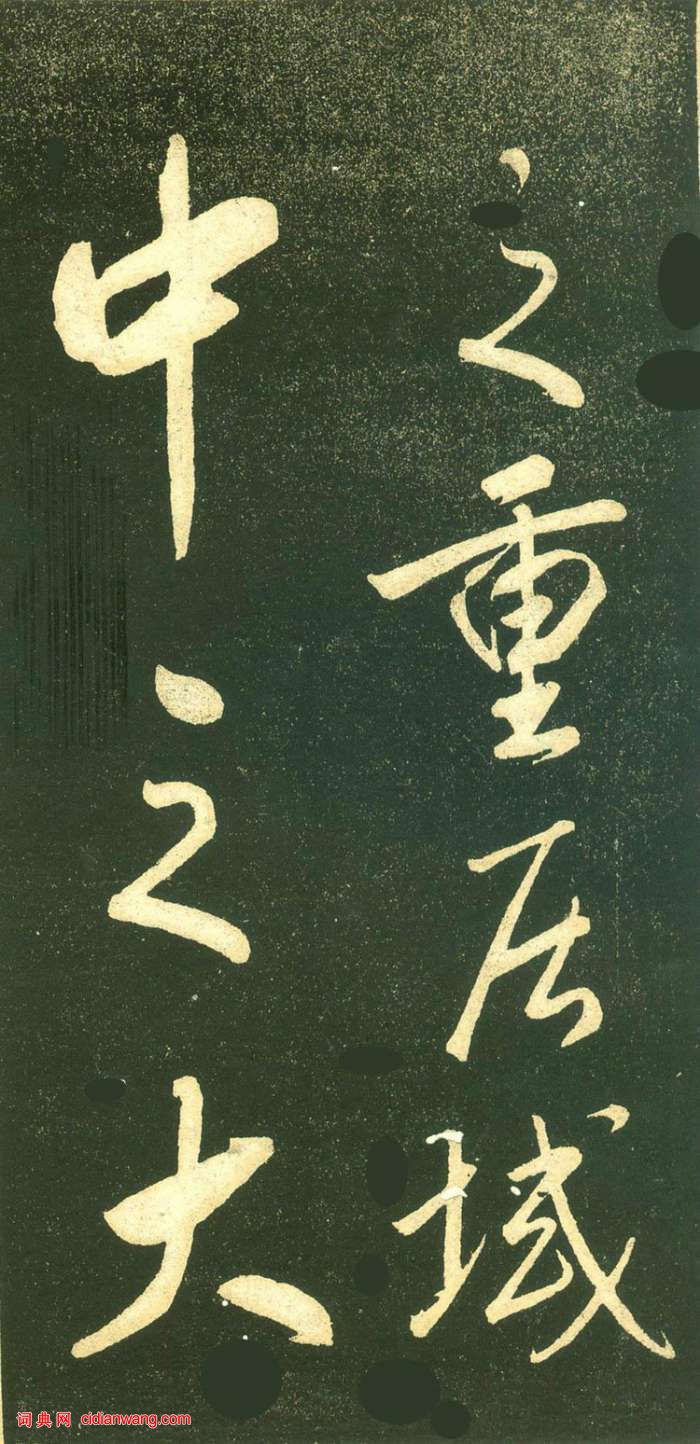 之重居域
中之大
词典网 cidianwang.com